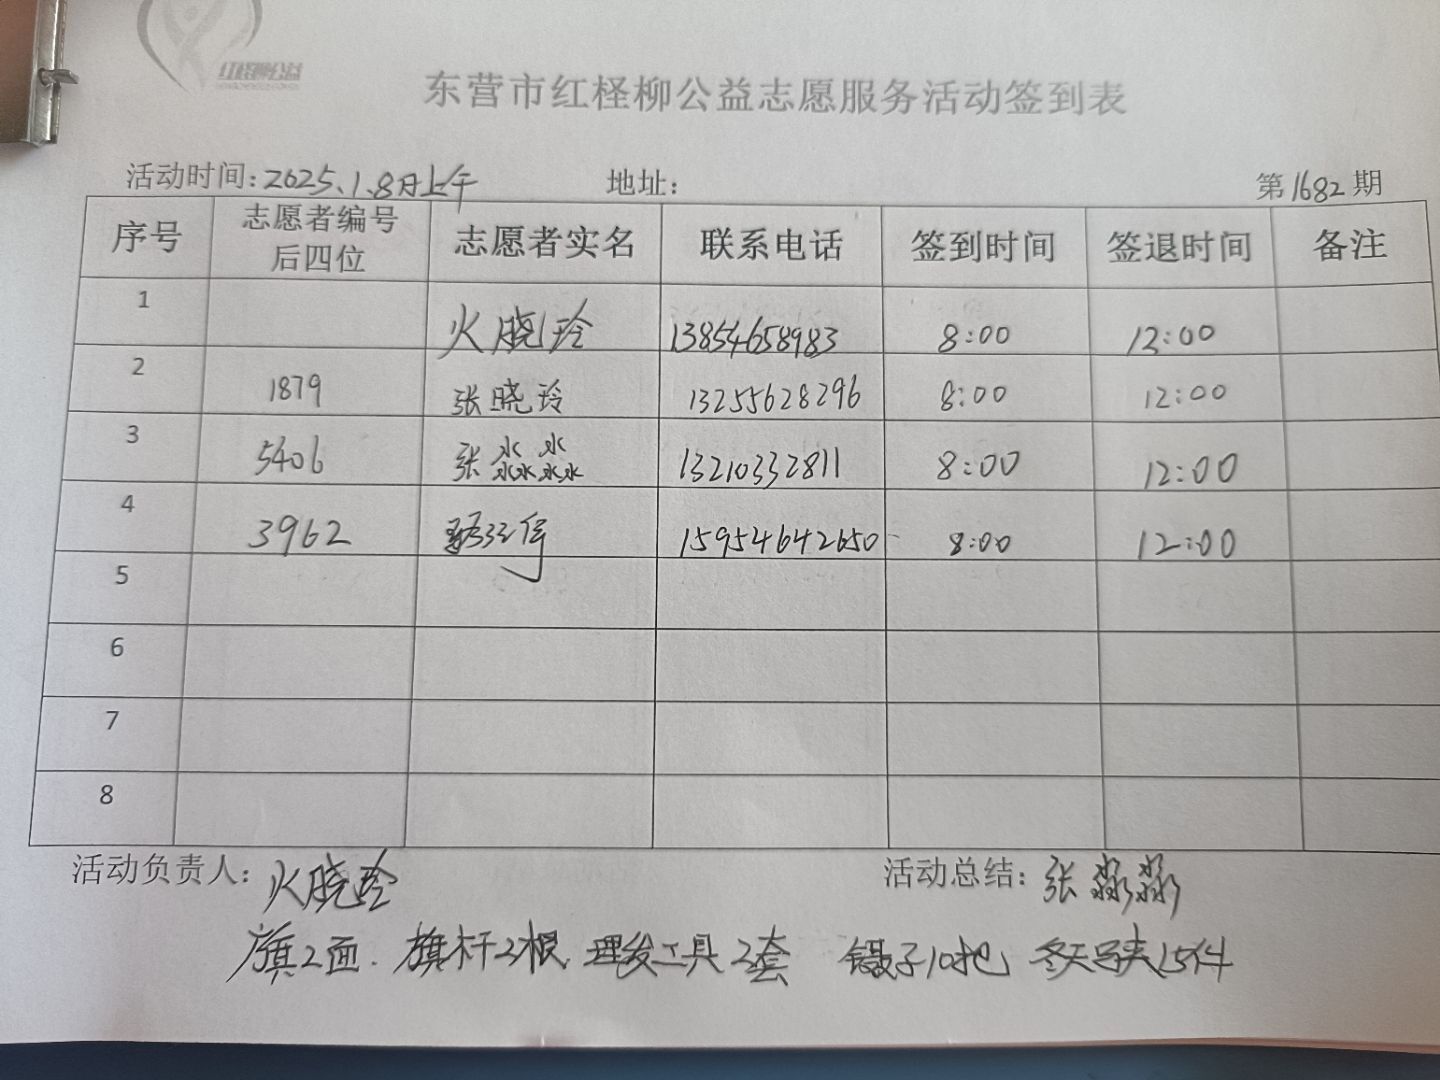 红柽柳公益
东营市红柽柳公益志愿服务活动签到表
活动时间:2025.1.8日上午 地址: 第1682期
序号 志愿者编号后四位 志愿者实名 联系电话 签到时间 签退时间 备注
1 火晓玲 13854658983 8:00 12:00
2 1879 张晓玲 13255628296 8:00 12:00
3 5406 张淼淼 13210332811 8:00 12:00
4 3962 15954642650 8:00 12:00
5
6
7
8
活动负责人:火晓玲 活动总结:张淼淼
旗2面. 旗杆2根. 理发工具2套 镊子10把 冬天马夹15件